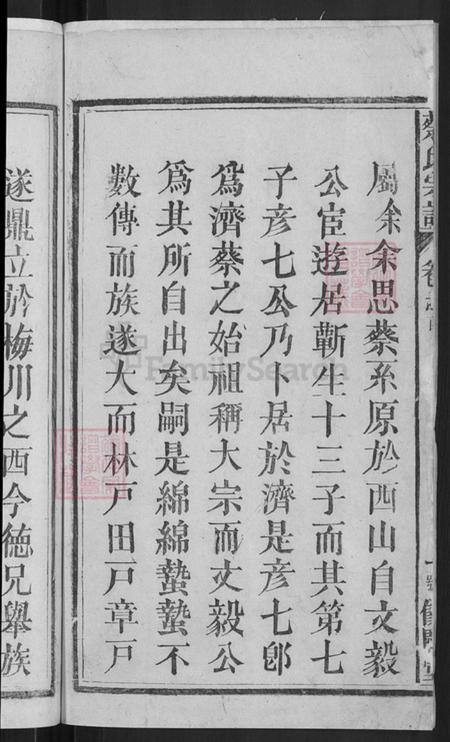 蔡氏宗譜 卷之首
屬余余思蔡系原於西山自文毅
公宦遊居蘄生十三子而其第七
子彦七公乃卜居於濟是彦七郎
爲濟蔡之始祖稱大宗而文毅公
爲其所自出矣嗣是綿綿蟄蟄不
數傳而族遂大而林戸田戸章戸
遂鼎立於梅川之西今德兄舉族
FamilySearch